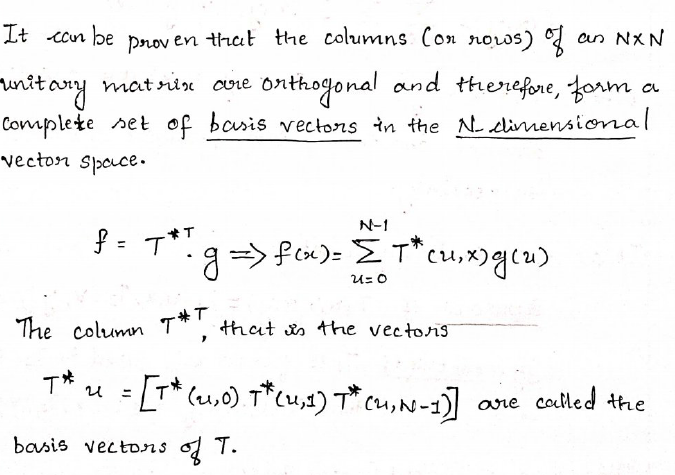 It can be proven that the columns (or rows) of an N×N
unitary matrix are orthogonal and therefore, form a
complete set of basis vectors in the N-dimensional
vector space.
f = T*ᵀ. g => f(x) = N-1 Σ u=0 T*(u,x)g(u)
The column T*ᵀ, that is the vectors
T* u = [T*(u,0) T*(u,1) T*(u,N-1)] are called the
basis vectors of T.